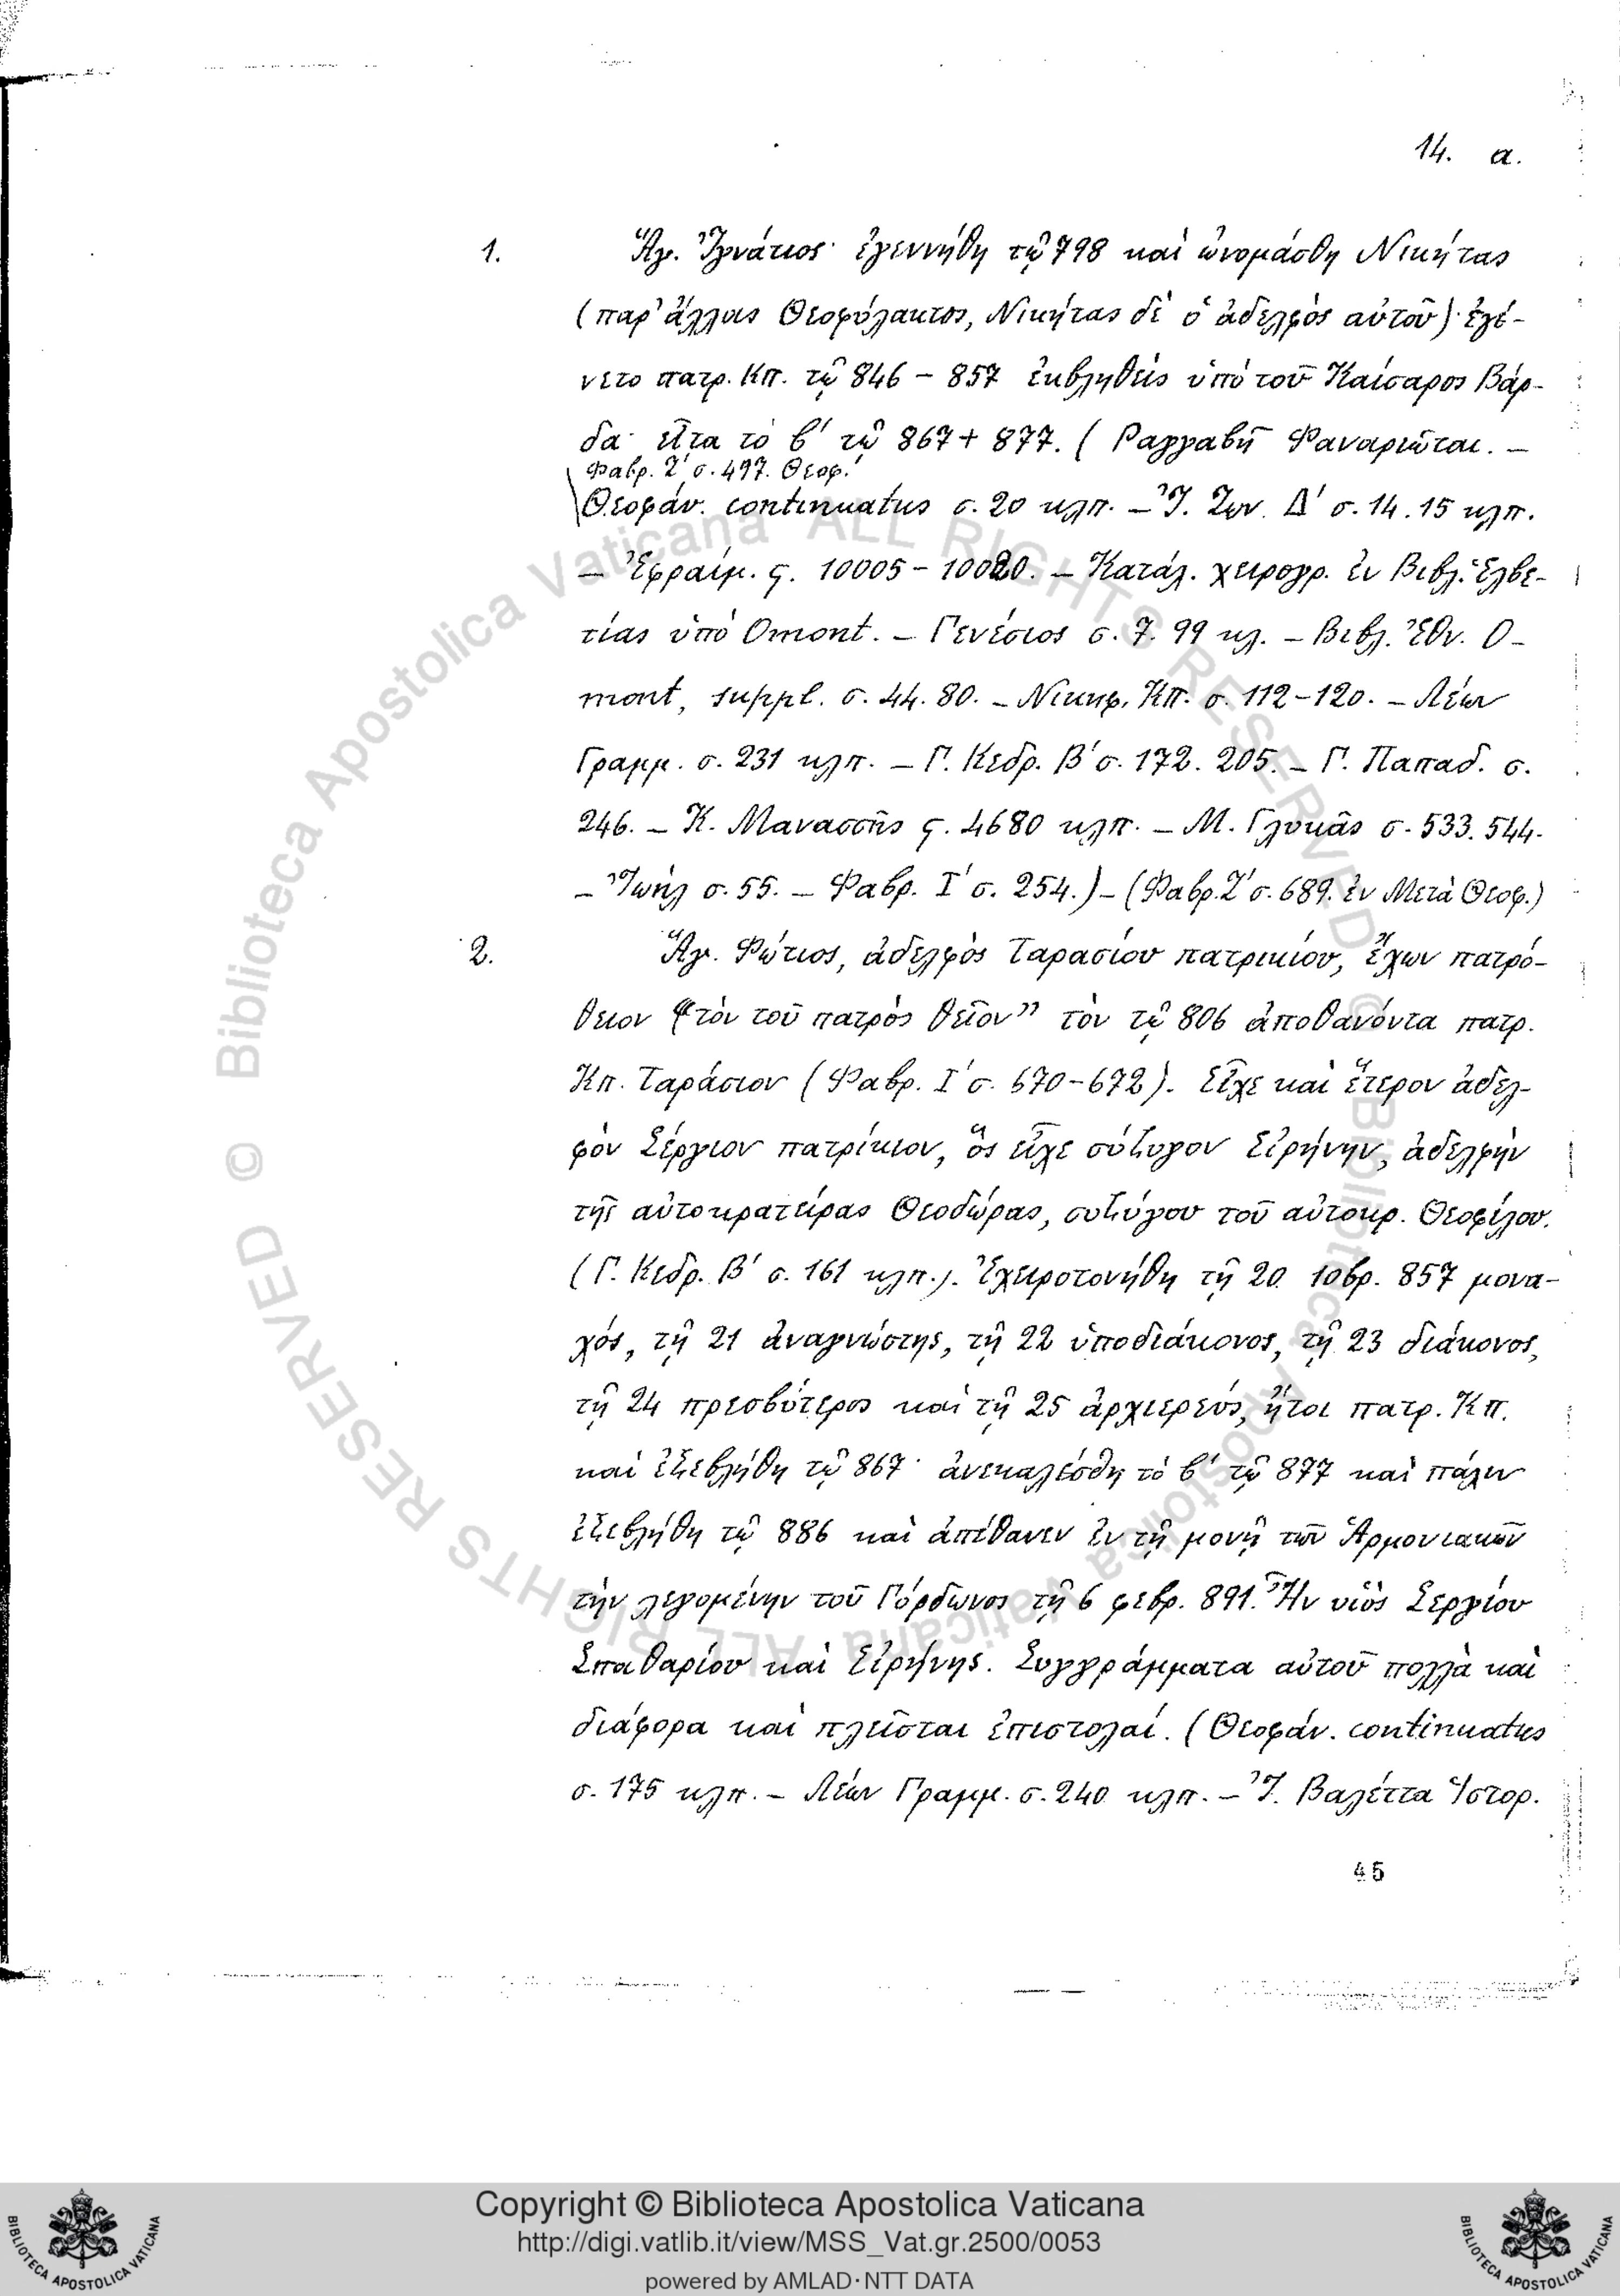 14. α.
1. Ἅγ. Ἰγνάτιος· ἐγεννήθη τῷ 798 καὶ ὠνομάσθη Νικήτας
(παρ' ἄλλοις Θεοφύλακτος, Νικήτας δὲ ὁ ἀδελφὸς αὐτοῦ)· ἐγέ-
νετο πατρ. Κπ. τῷ 846 – 857 ἐκβληθεὶς ὑπὸ τοῦ Καίσαρος Βάρ-
δα· εἶτα τὸ β' τῷ 867 + 877. (Ραγγαβῆ Φαναριῶται. –
Φαβρ. Ζ' σ. 497. Θεοφ.
Θεοφάν. continuatus σ. 20 κλπ. – Ἰ. Ζων. Δ' σ. 14. 15 κλπ.
– Ἐφραίμ. ς. 10005 – 10020. – Κατάλ. χειρογρ. ἐν Βιβλ. Ἑλβε-
τίας ὑπὸ Omont. – Γενέσιος σ. 7. 99 κλ. – Βιβλ. Ἐθν. O-
mont, suppl. σ. 44. 80. – Νικηφ. Κπ. σ. 112–120. – Λέων
Γραμμ. σ. 231 κλπ. – Γ. Κεδρ. Β' σ. 172. 205. – Γ. Παπαδ. σ.
246. – Κ. Μανασσῆς ς. 4680 κλπ. – Μ. Γλυκᾶς σ. 533. 544.
– Ἰωὴλ σ. 55. – Φαβρ. Ι' σ. 254.) – (Φαβρ. Ζ' σ. 689. ἐν Μετὰ Θεοφ.)
2. Ἅγ. Φώτιος, ἀδελφὸς Ταρασίου πατρικίου, ἔχων πατρό-
θειον "τὸν τοῦ πατρὸς θεῖον" τὸν τῷ 806 ἀποθανόντα πατρ.
Κπ. Ταράσιον (Φαβρ. Ι' σ. 670–672). Εἶχε καὶ ἕτερον ἀδελ-
φὸν Σέργιον πατρίκιον, ὃς εἶχε σύζυγον Εἰρήνην, ἀδελφὴν
τῆς αὐτοκρατείρας Θεοδώρας, συζύγου τοῦ αὐτοκρ. Θεοφίλου.
(Γ. Κεδρ. Β' σ. 161 κλπ.). Ἐχειροτονήθη τῇ 20 10βρ. 857 μονα-
χός, τῇ 21 ἀναγνώστης, τῇ 22 ὑποδιάκονος, τῇ 23 διάκονος,
τῇ 24 πρεσβύτερος καὶ τῇ 25 ἀρχιερεύς, ἤτοι πατρ. Κπ.
καὶ ἐξεβλήθη τῷ 867· ἀνεκαλέσθη τὸ β' τῷ 877 καὶ πάλιν
ἐξεβλήθη τῷ 886 καὶ ἀπέθανεν ἐν τῇ μονῇ τῶν Ἁρμονιακῶν
τὴν λεγομένην τοῦ Γόρδωνος τῇ 6 φεβρ. 891. Ἦν υἱὸς Σεργίου
Σπαθαρίου καὶ Εἰρήνης. Συγγράμματα αὐτοῦ πολλὰ καὶ
διάφορα καὶ πλεῖσται ἐπιστολαί. (Θεοφάν. continuatus
σ. 175 κλπ. – Λέων Γραμμ. σ. 240 κλπ. – Ἰ. Βαλέττα Ἱστορ.
45
© Biblioteca Apostolica Vaticana ALL RIGHTS RESERVED © Biblioteca Apostolica Vaticana ALL RIGHTS RESERVED
Copyright © Biblioteca Apostolica Vaticana
http://digi.vatlib.it/view/MSS_Vat.gr.2500/0053
powered by AMLAD·NTT DATA
BIBLIOTECA APOSTOLICA VATICANA
BIBLIOTECA APOSTOLICA VATICANA